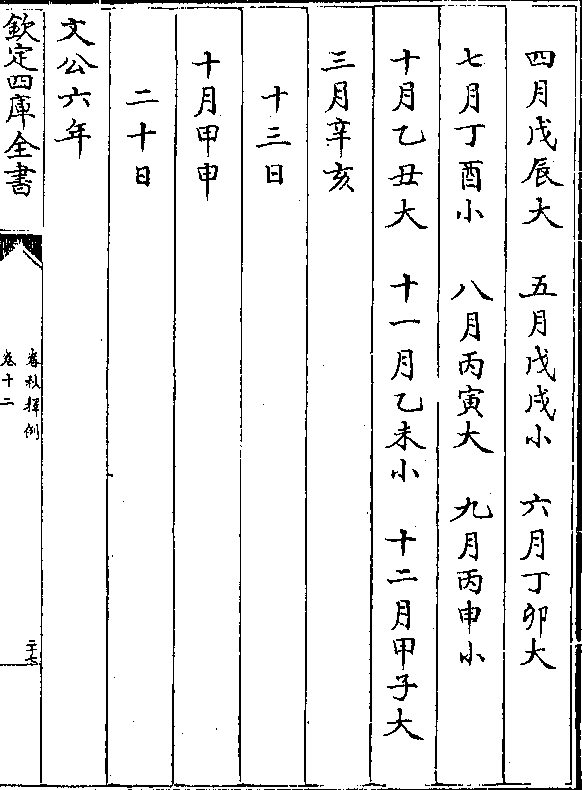 四月戊辰大　五月戊戌小　六月丁卯大
七月丁酉小　八月丙寅大　九月丙申小
十月乙丑大　十一月乙未小　十二月甲子大
三月辛亥
十三日
十月甲申
二十日
文公六年
欽定四庫全書
春秋釋例
卷十二
二十七